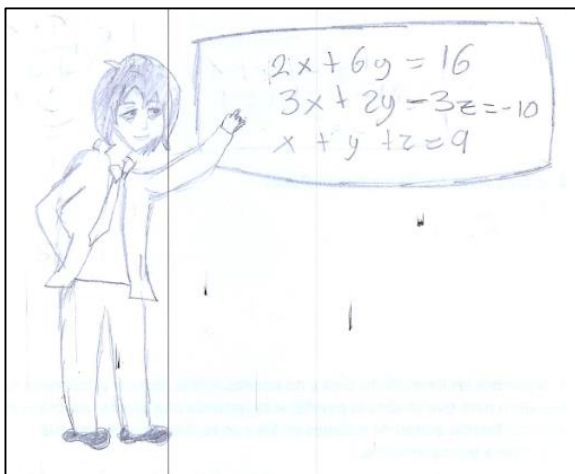 2x + 6y = 16
3x + 2y - 3z = -10
x + y + z = 9